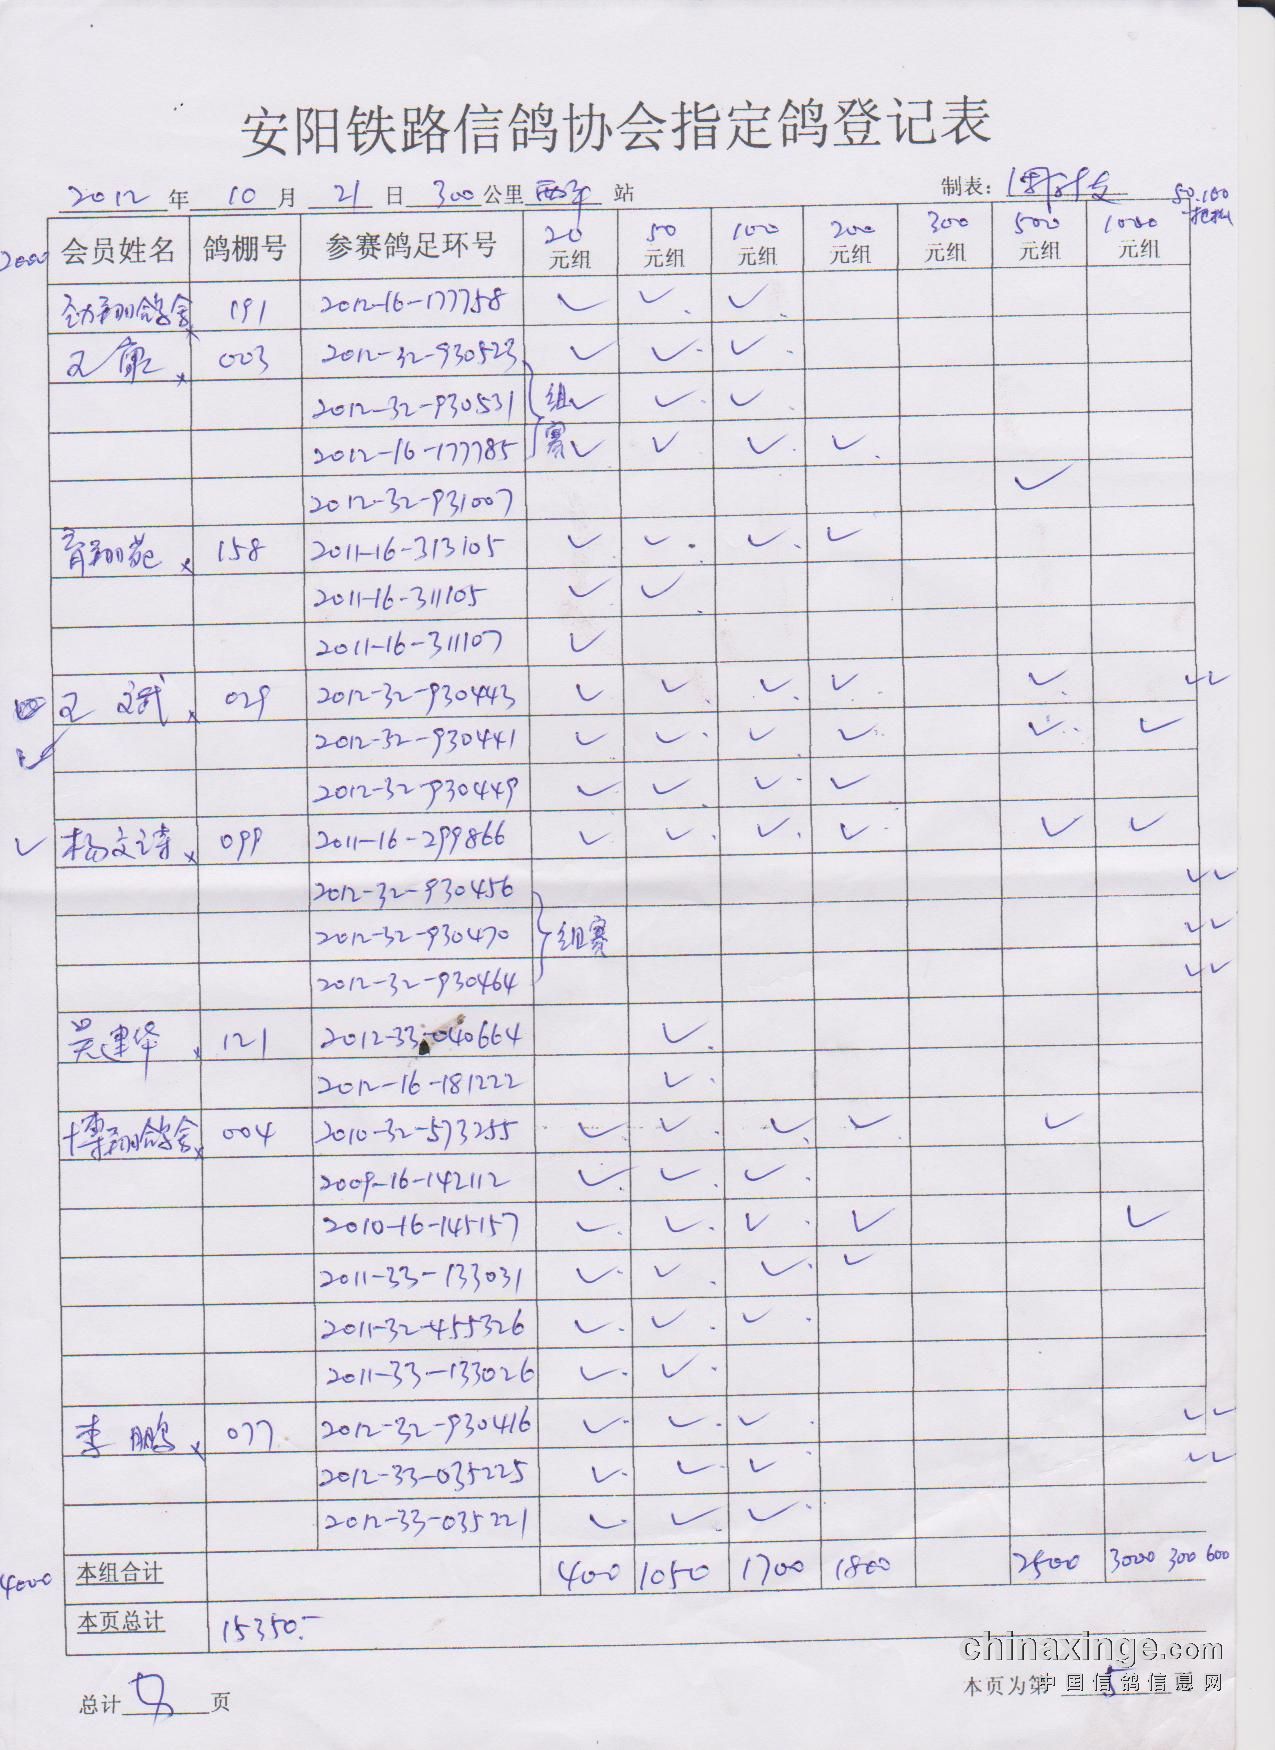 安阳铁路信鸽协会指定鸽登记表
2012 年 10 月 21 日 300 公里 站 制表：
50.100
2000 会员姓名 鸽棚号 参赛鸽足环号 20元组 50元组 100元组 200元组 300元组 500元组 1000元组
劲翔鸽舍 191 2012-16-177758 ✓ ✓ ✓
003 2012-32-930523 ✓ ✓ ✓
2012-32-930531 组 ✓ ✓ ✓
2012-16-177785 赛 ✓ ✓ ✓ ✓
2012-32-931007 ✓
育翔苑 158 2011-16-313105 ✓ ✓ ✓ ✓
2011-16-311105 ✓ ✓
2011-16-311107 ✓
王文斌 029 2012-32-930443 ✓ ✓ ✓ ✓ ✓ ✓✓
✓ 2012-32-930441 ✓ ✓ ✓ ✓ ✓ ✓
2012-32-930449 ✓ ✓ ✓ ✓
✓ 杨文诗 099 2011-16-299866 ✓ ✓ ✓ ✓ ✓ ✓
2012-32-930456 ✓✓
2012-32-930470 组赛 ✓✓
2012-32-930464 ✓✓
吴建华 121 2012-33-040664 ✓
2012-16-181222 ✓
博翔鸽舍 004 2010-32-573255 ✓ ✓ ✓ ✓ ✓
2009-16-142112 ✓ ✓ ✓
2010-16-145157 ✓ ✓ ✓ ✓ ✓
2011-33-133031 ✓ ✓ ✓ ✓
2011-32-455326 ✓ ✓ ✓
2011-33-133026 ✓ ✓
李鹏 077 2012-32-930416 ✓ ✓ ✓ ✓✓
2012-33-035225 ✓ ✓ ✓ ✓✓
2012-33-035221 ✓ ✓ ✓
4000 本组合计 400 1050 1700 1800 2500 3000 300 600
本页总计 15350.-
chinaxinge.com
中国信鸽信息网
总计 页 本页为第 5